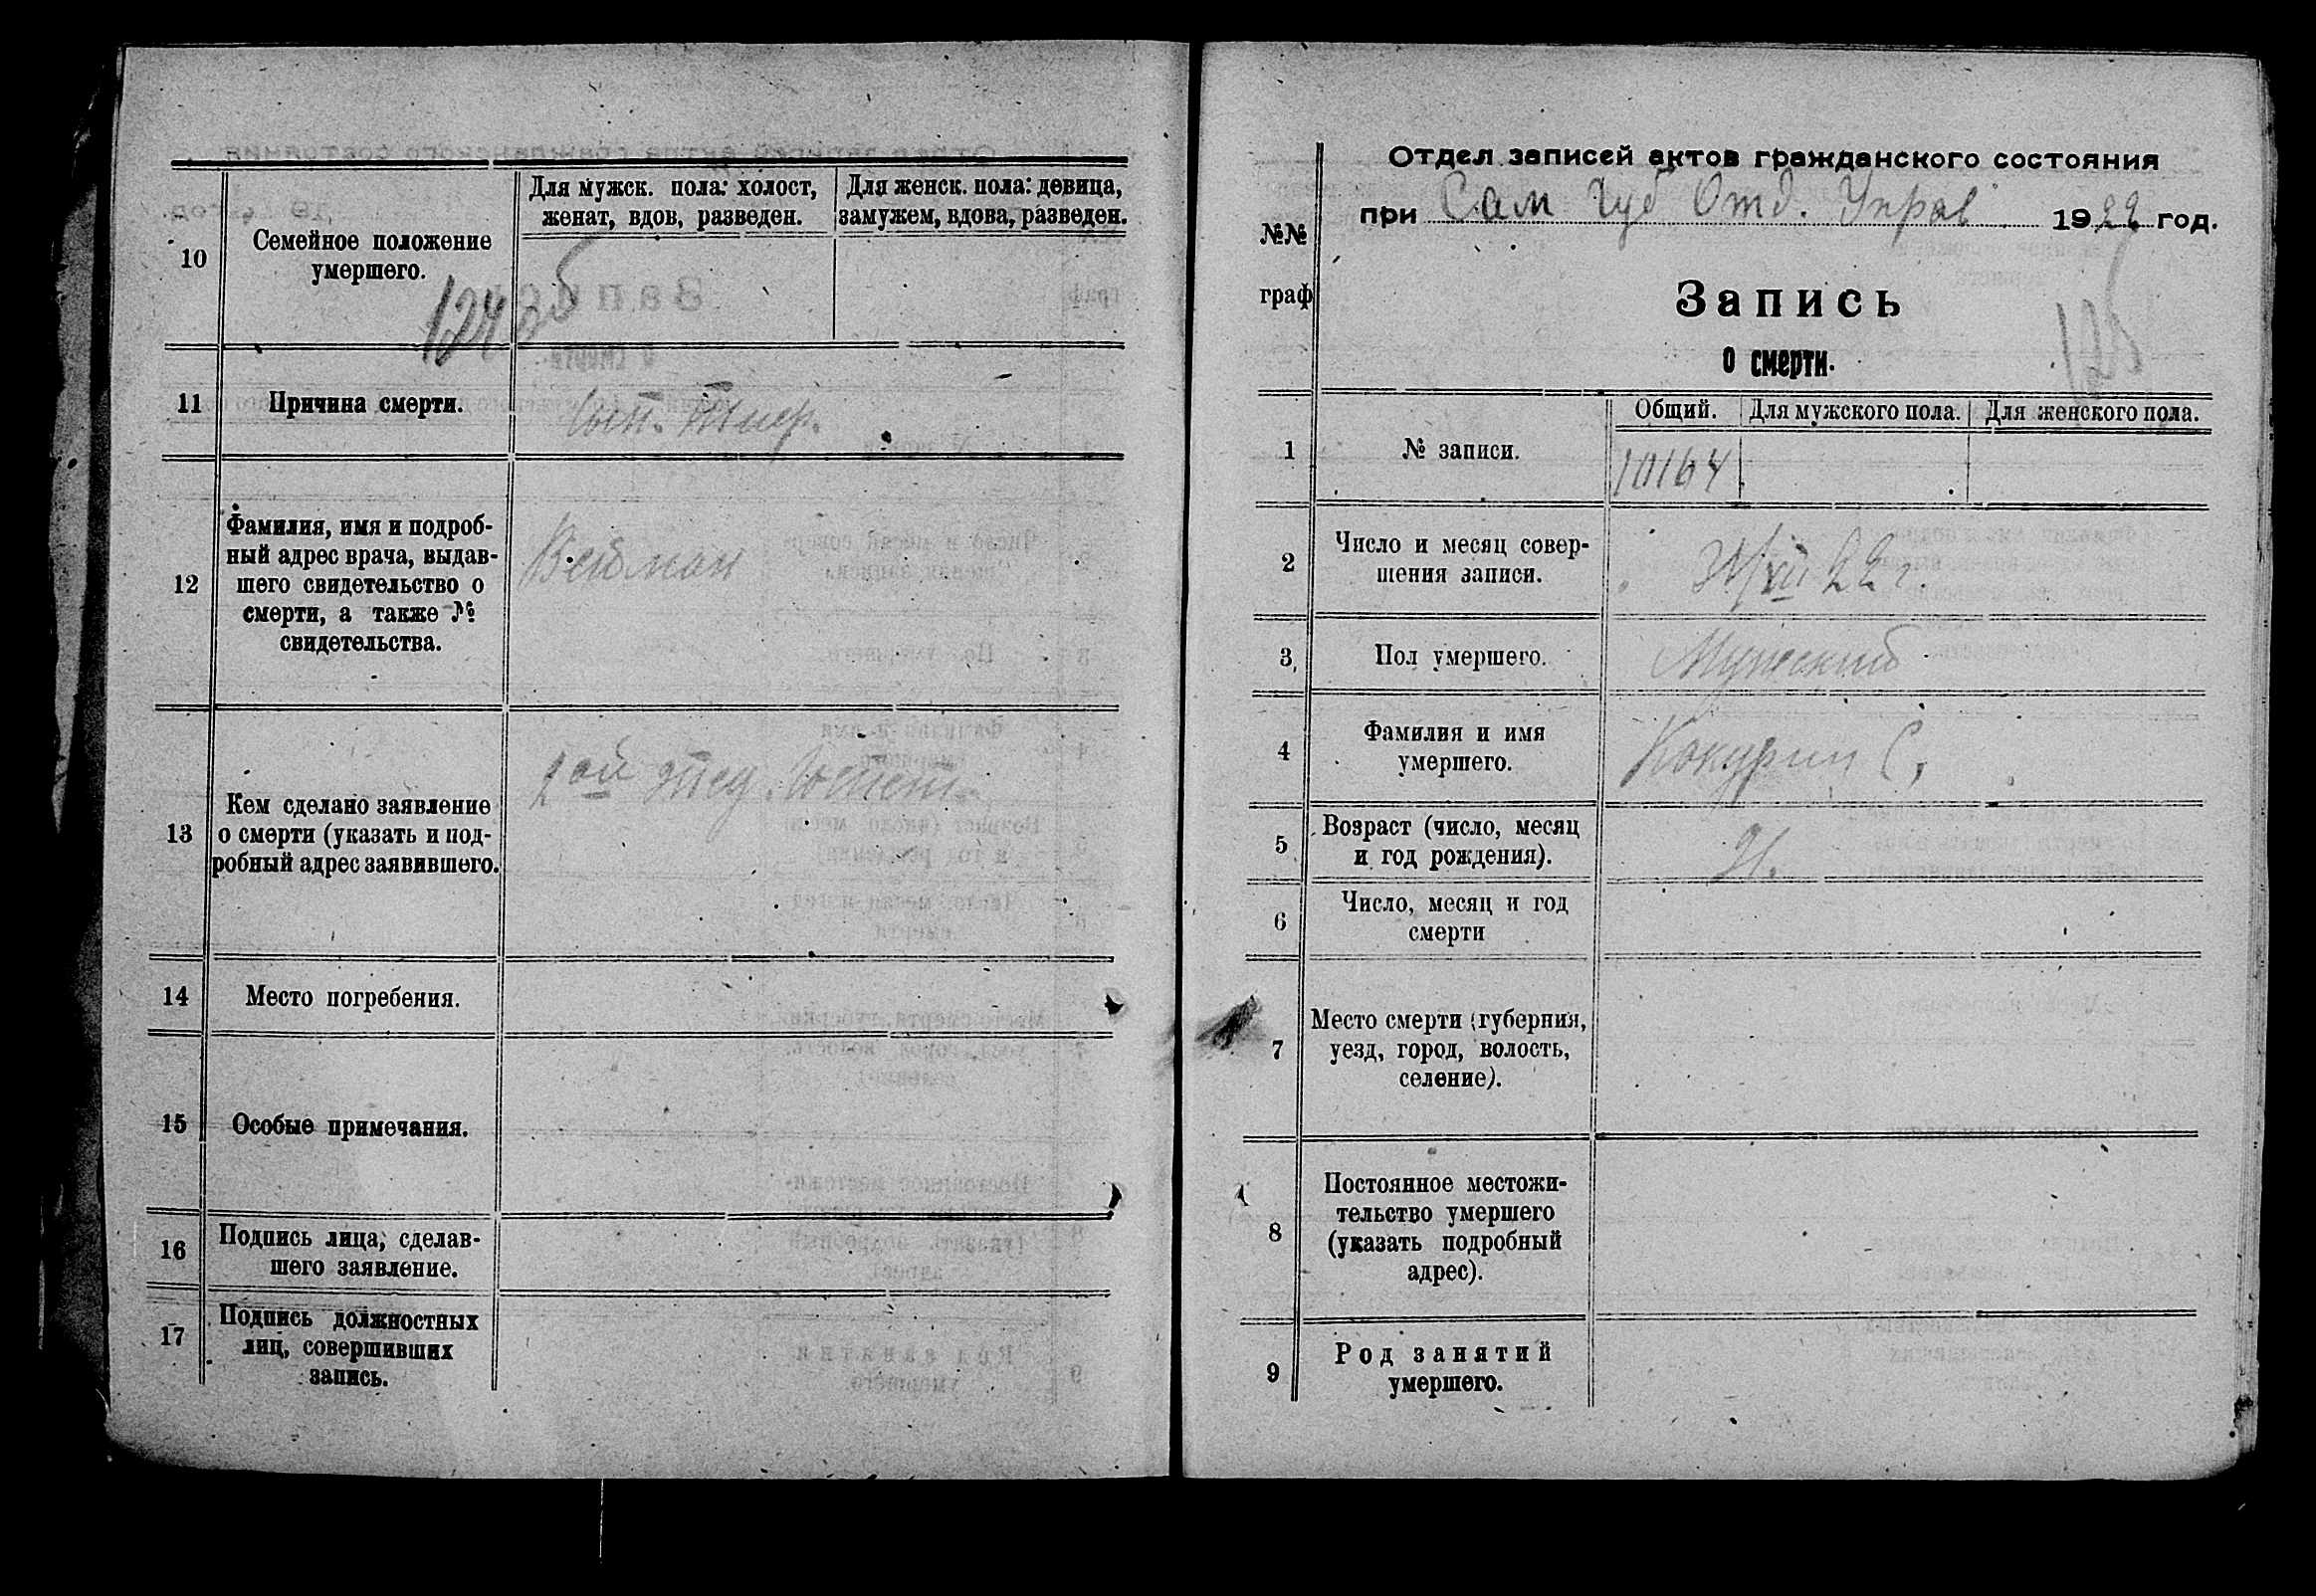 10
Семейное положение
умершего.
Для мужск. пола: холост,
женат, вдов, разведен.
Для женск. пола: девица,
замужем, вдова, разведен.
11
Причина смерти.
Сып. тиф.
12
Фамилия, имя и подроб-
ный адрес врача, выдав-
шего свидетельство о
смерти, а также №
свидетельства.
Вейман
13
Кем сделано заявление
о смерти (указать и под-
робный адрес заявившего.
14
Место погребения.
15
Особые примечания.
16
Подпись лица, сделав-
шего заявление.
17
Подпись должностных
лиц, совершивших
запись.
Отдел записей актов гражданского состояния
при Сам Губ Отд. Управ 1922 год.
№№
граф
Запись
о смерти.
Общий. Для мужского пола. Для женского пола.
1
№ записи.
10164
2
Число и месяц совер-
шения записи.
22 г.
3
Пол умершего.
Мужский
4
Фамилия и имя
умершего.
Кокурин С.
5
Возраст (число, месяц
и год рождения).
21.
6
Число, месяц и год
смерти
7
Место смерти (губерния,
уезд, город, волость,
селение).
8
Постоянное местожи-
тельство умершего
(указать подробный
адрес).
9
Род занятий
умершего.